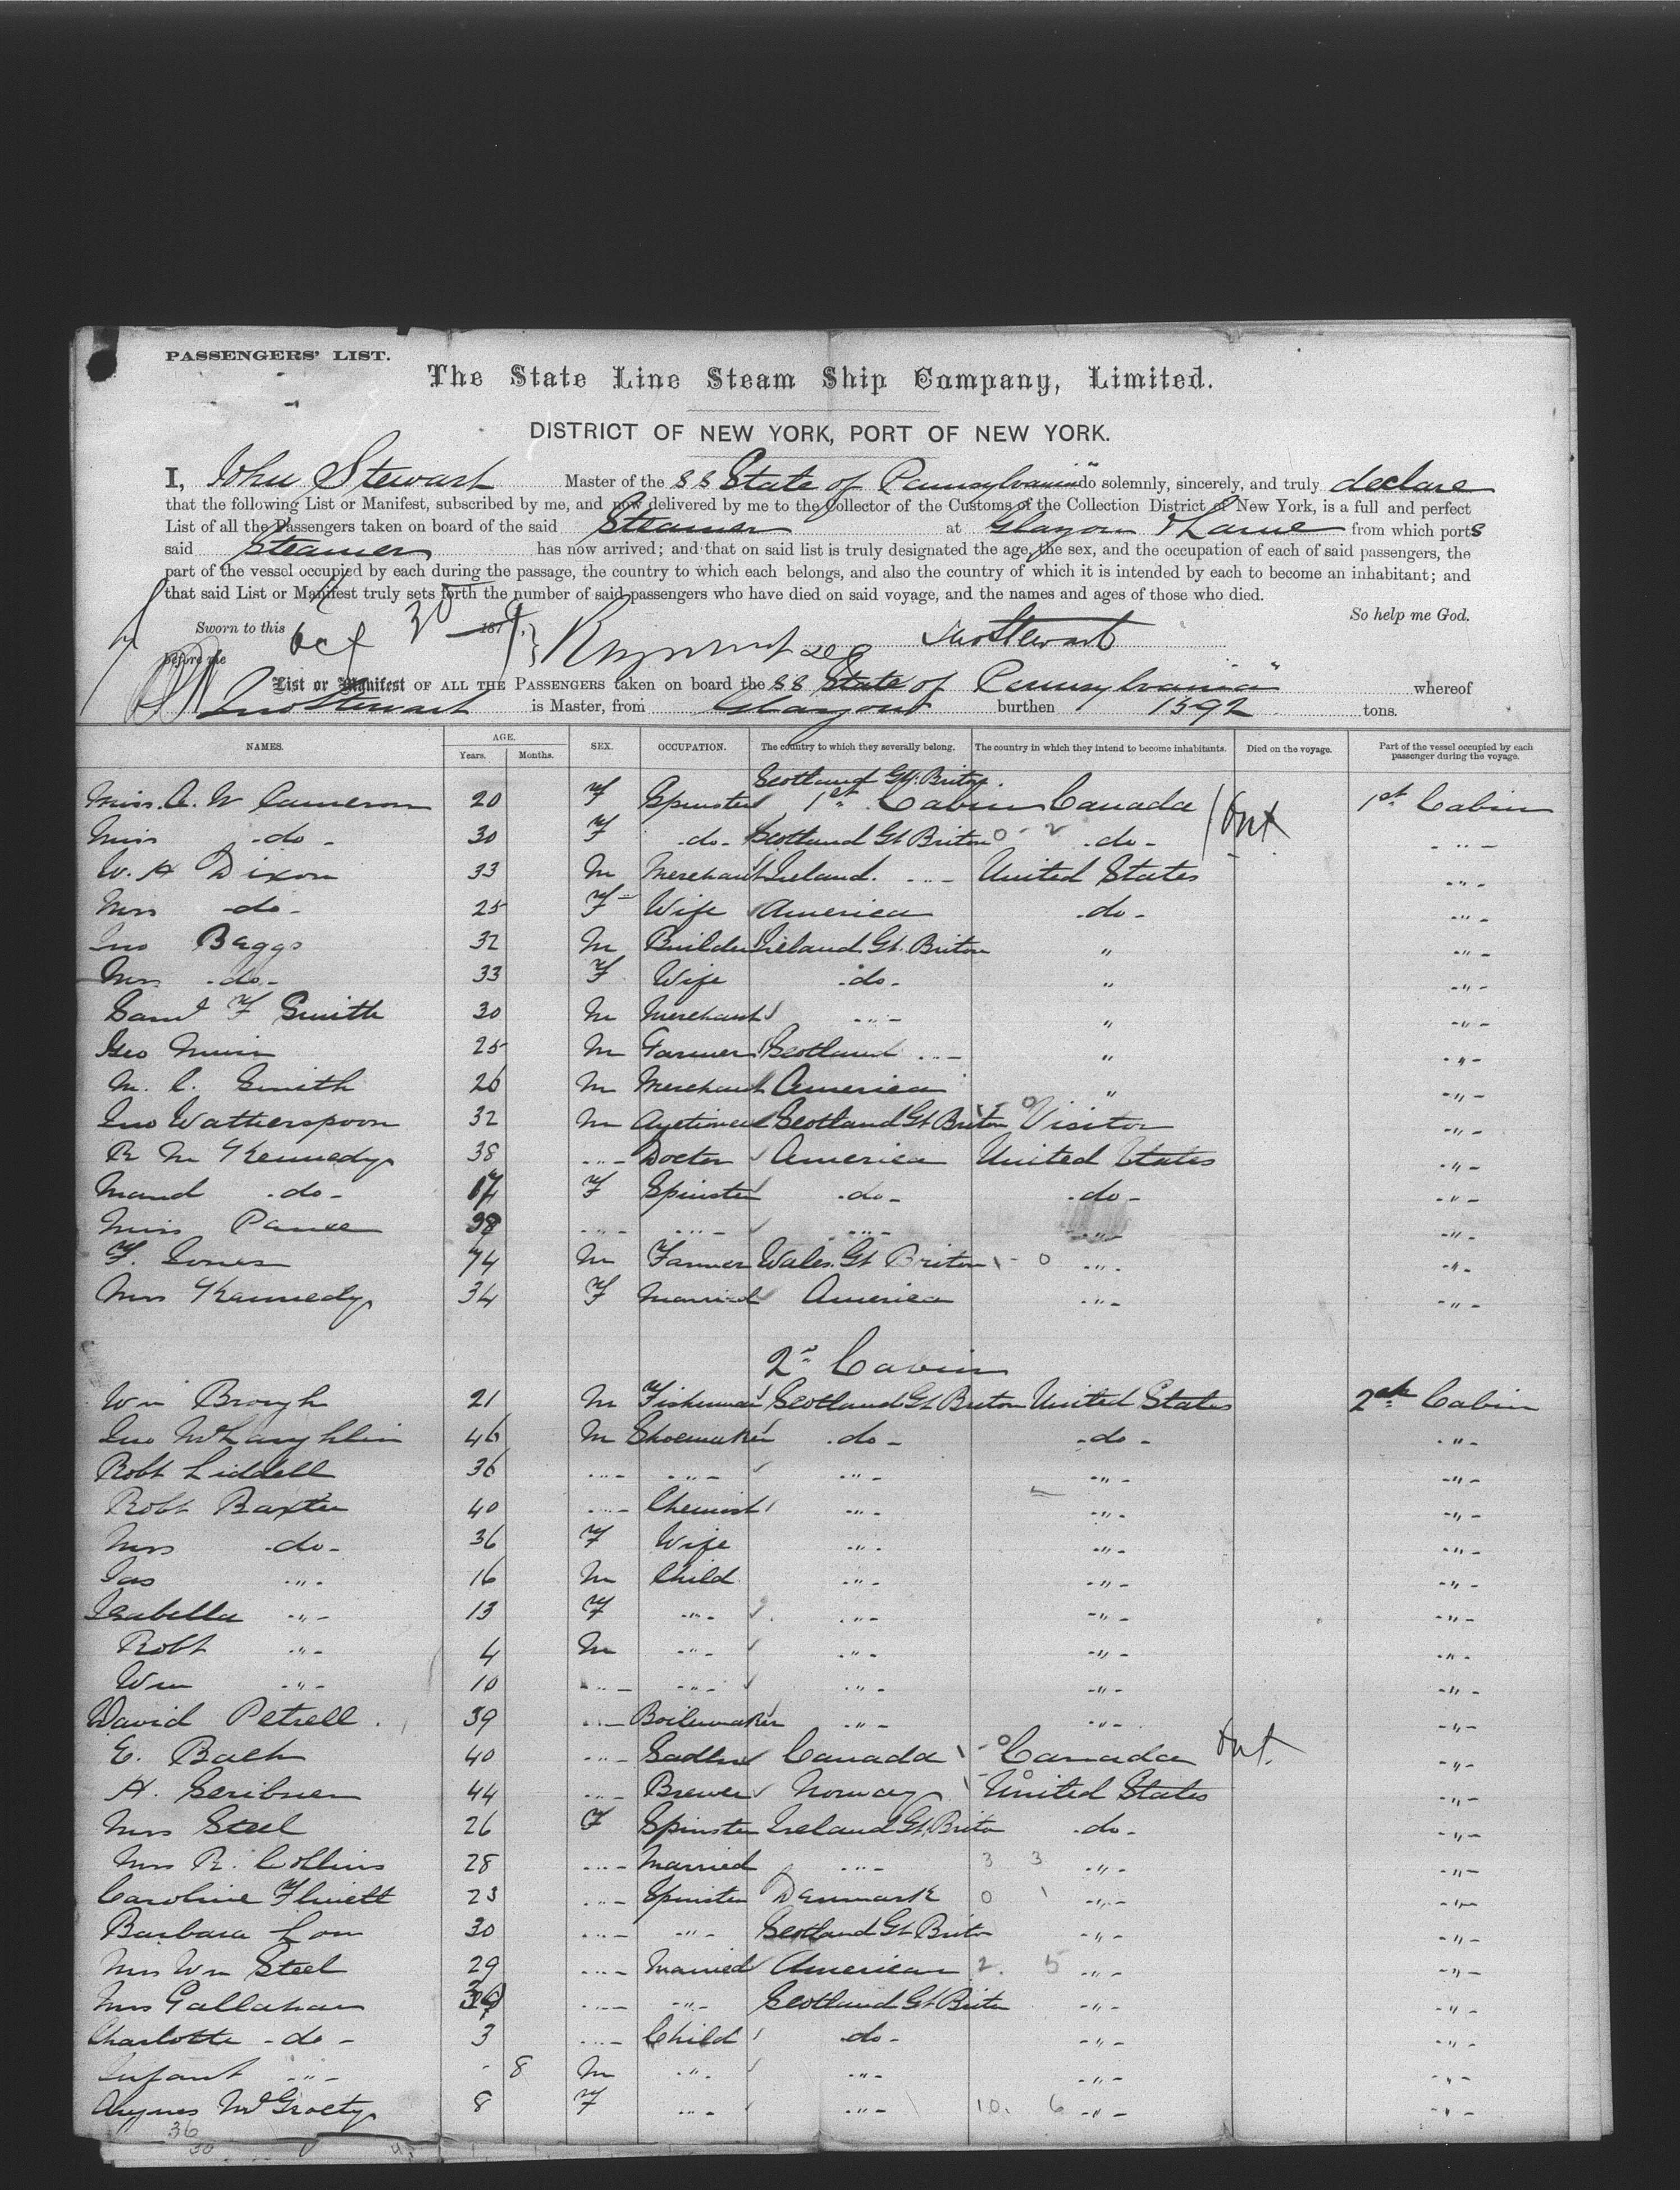 PASSENGERS' LIST.
The State Line Steam Ship Company, Limited.
DISTRICT OF NEW YORK, PORT OF NEW YORK.
I, John Stewart Master of the SS State of Pennsylvania do solemnly, sincerely, and truly declare
that the following List or Manifest, subscribed by me, and now delivered by me to the Collector of the Customs of the Collection District of New York, is a full and perfect
List of all the Passengers taken on board of the said Steamer at Glasgow & Larne from which ports
said Steamer has now arrived; and that on said list is truly designated the age, the sex, and the occupation of each of said passengers, the
part of the vessel occupied by each during the passage, the country to which each belongs, and also the country of which it is intended by each to become an inhabitant; and
that said List or Manifest truly sets forth the number of said passengers who have died on said voyage, and the names and ages of those who died.
So help me God.
Sworn to this Oct 30 1879. Jno Stewart
before me
List or Manifest OF ALL THE PASSENGERS taken on board the SS State of Pennsylvania whereof
Jno Stewart is Master, from Glasgow burthen 1592 tons.
NAMES. AGE. Years. Months. SEX. OCCUPATION. The country to which they severally belong. The country in which they intend to become inhabitants. Died on the voyage. Part of the vessel occupied by each passenger during the voyage.
Scotland Gt. Briton
Miss. A. W Cameron 20 F Spinster 1st Cabin Canada 1st Cabin
Miss -do- 30 F -do- Scotland Gt Briton -do- -"-
W. H Dixon 33 M Merchant Ireland. -"- United States -"-
Mrs -do- 25 F Wife America -do- -"-
Jno Baggs 32 M Builder Ireland Gt. Briton " -"-
Mrs -do- 33 F Wife -do- " -"-
Saml F Smith 30 M Merchant -"- " -"-
Geo Muir 25 M Farmer Scotland -"- " -"-
M. C. Smith 26 M Merchant America " -"-
Jno Watherspoon 32 M Auctioneer Scotland Gt Briton Visitor -"-
R M Kennedy 38 -"- Doctor America United States -"-
Maud -do- 17 F Spinster -do- -do- -"-
Miss 38 -"- -"- -"- -"- -"-
F. Jones 74 M Farmer Wales. Gt Briton -"- -"-
Mrs Kennedy 34 F Married America -"- -"-
2nd Cabin
Wm Brough 21 M Fisherman Scotland Gt Briton United States 2nd Cabin
Jno McLaughlin 46 M Shoemaker -do- -do- -"-
Robt Liddell 36 -"- -"- -"- -"- -"-
Robt Baxter 40 -"- Chemist -"- -"- -"-
Mrs -do- 36 F Wife -"- -"- -"-
Jas -"- 16 M Child -"- -"- -"-
Isabella -"- 13 F -"- -"- -"- -"-
Robt -"- 4 M -"- -"- -"- -"-
Wm -"- 10 -"- -"- -"- -"- -"-
David Petrell 39 -"- Boilermaker -"- -"- -"-
E. Bach 40 -"- Sadler Canada Canada -"-
H. Scribner 44 -"- Brewer Norway United States -"-
Mrs Steel 26 F Spinster Ireland Gt. Briton -do- -"-
Mrs R. Collins 28 -"- Married -"- 3 3 -"- -"-
Caroline 23 -"- Spinster Denmark -"- -"-
Barbara Low 30 -"- -"- Scotland Gt Briton -"- -"-
Mrs Wm Steel 29 -"- Married American 2. 5 -"- -"-
Mrs Gallahan -"- -"- Scotland Gt Briton -"- -"-
Charlotte -do- 3 -"- Child -do- -"- -"-
Infant -"- - 8 M -"- -"- -"- -"-
Agnes McGrotty 8 F -"- -"- 10. 6 -"- -"-
36
30